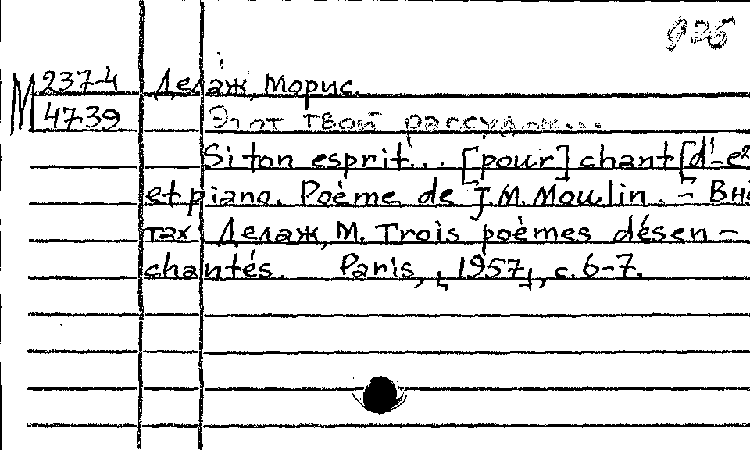 925
М 237-4 Делаж, Морис.
47-39 Этот твой рассудок...
Si ton esprit... [pour] chant [d'-e²
et piano. Poème de J.M. Moulin. –
тах: Делаж, М. Trois poèmes désen-
chantés. Paris, [1957], с. 6-7.